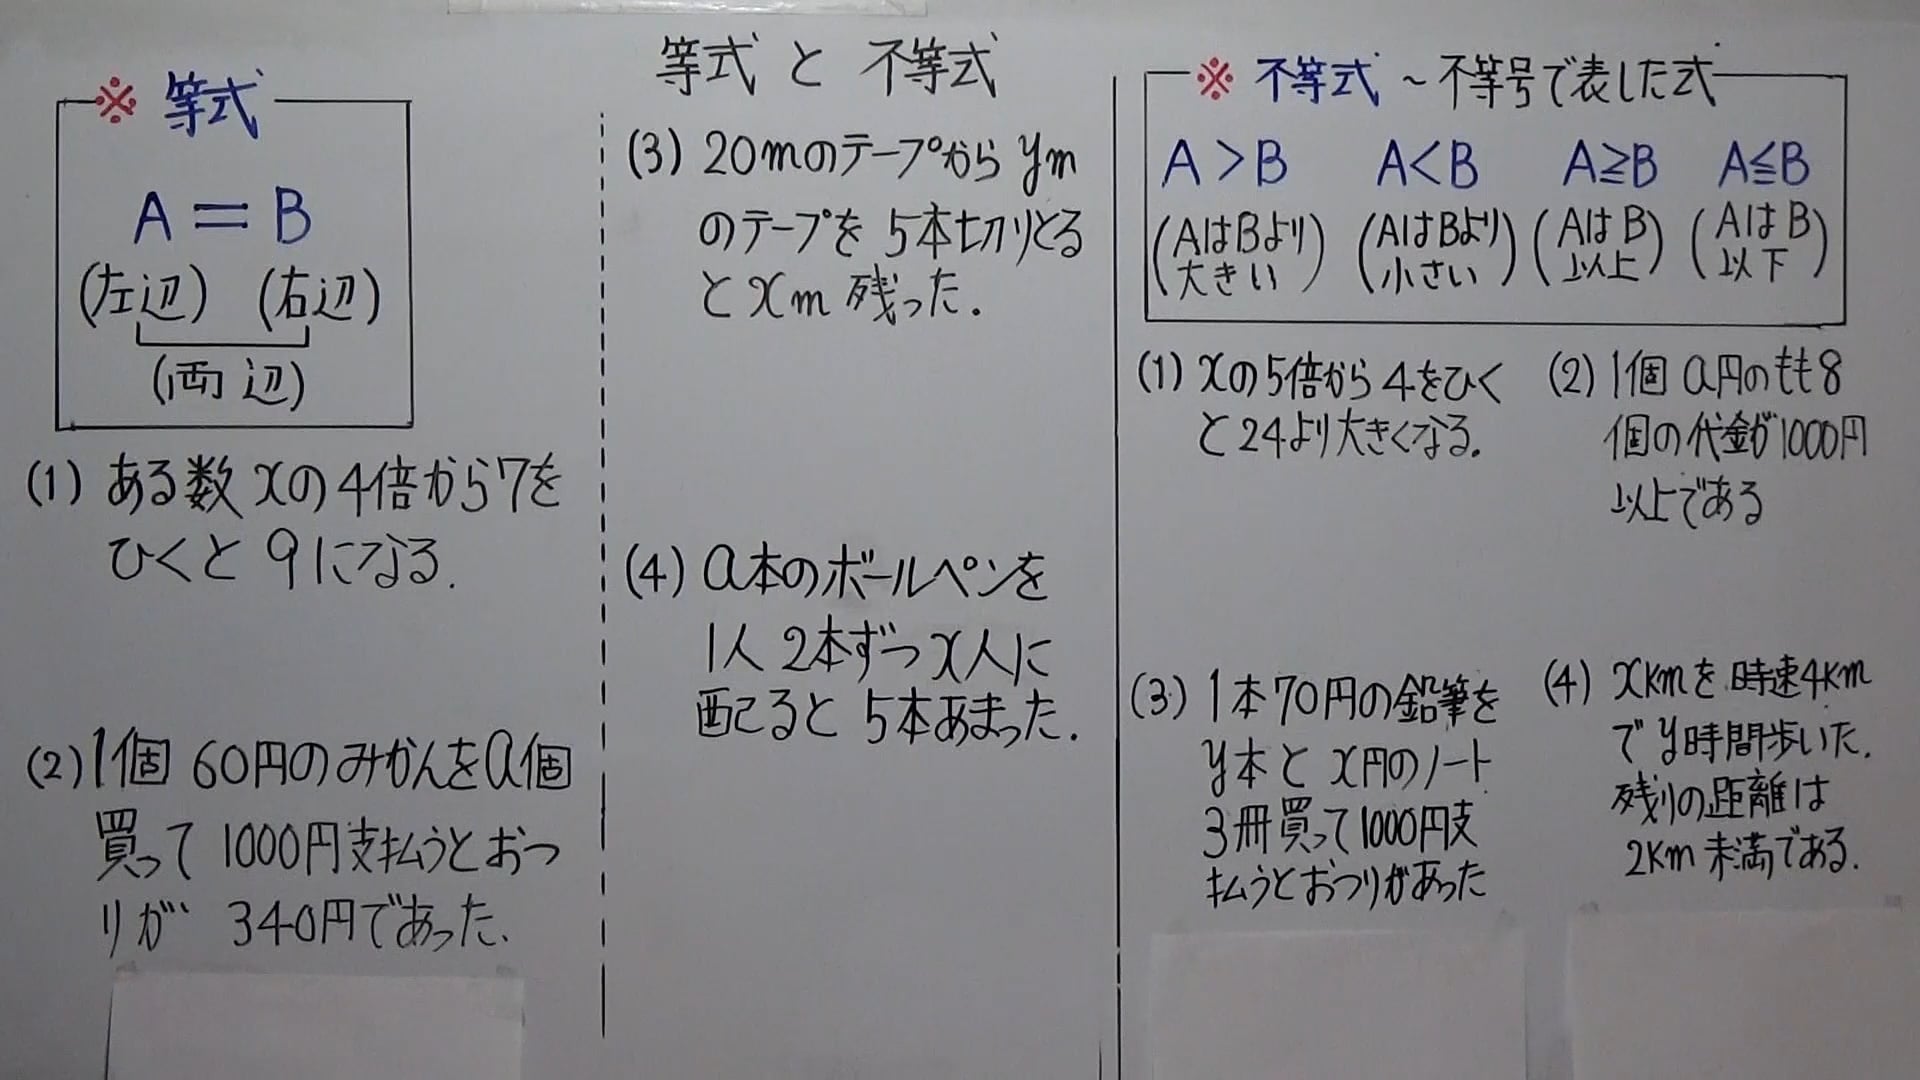 等式 と 不等式
※ 等式
A = B
(左辺) (右辺)
(両辺)
(1) ある数xの4倍から7を
ひくと 9になる.
(2) 1個 60円のみかんをa個
買って 1000円支払うとおつ
りが 340円であった.
(3) 20mのテープから ym
のテープを 5本切りとる
と xm 残った.
(4) a本のボールペンを
1人 2本ずつ x人に
配ると 5本あまった.
※ 不等式 ~不等号で表した式
A > B A<B A≧B A≦B
(AはBより (AはBより (AはB (AはB
大きい) 小さい) 以上) 以下)
(1) xの5倍から4をひく
と24より大きくなる.
(2) 1個 a円のもも8
個の代金が1000円
以上である
(3) 1本70円の鉛筆を
y本と x円のノート
3冊買って1000円支
払うとおつりがあった
(4) xkmを時速4km
で y時間歩いた.
残りの距離は
2km未満である.